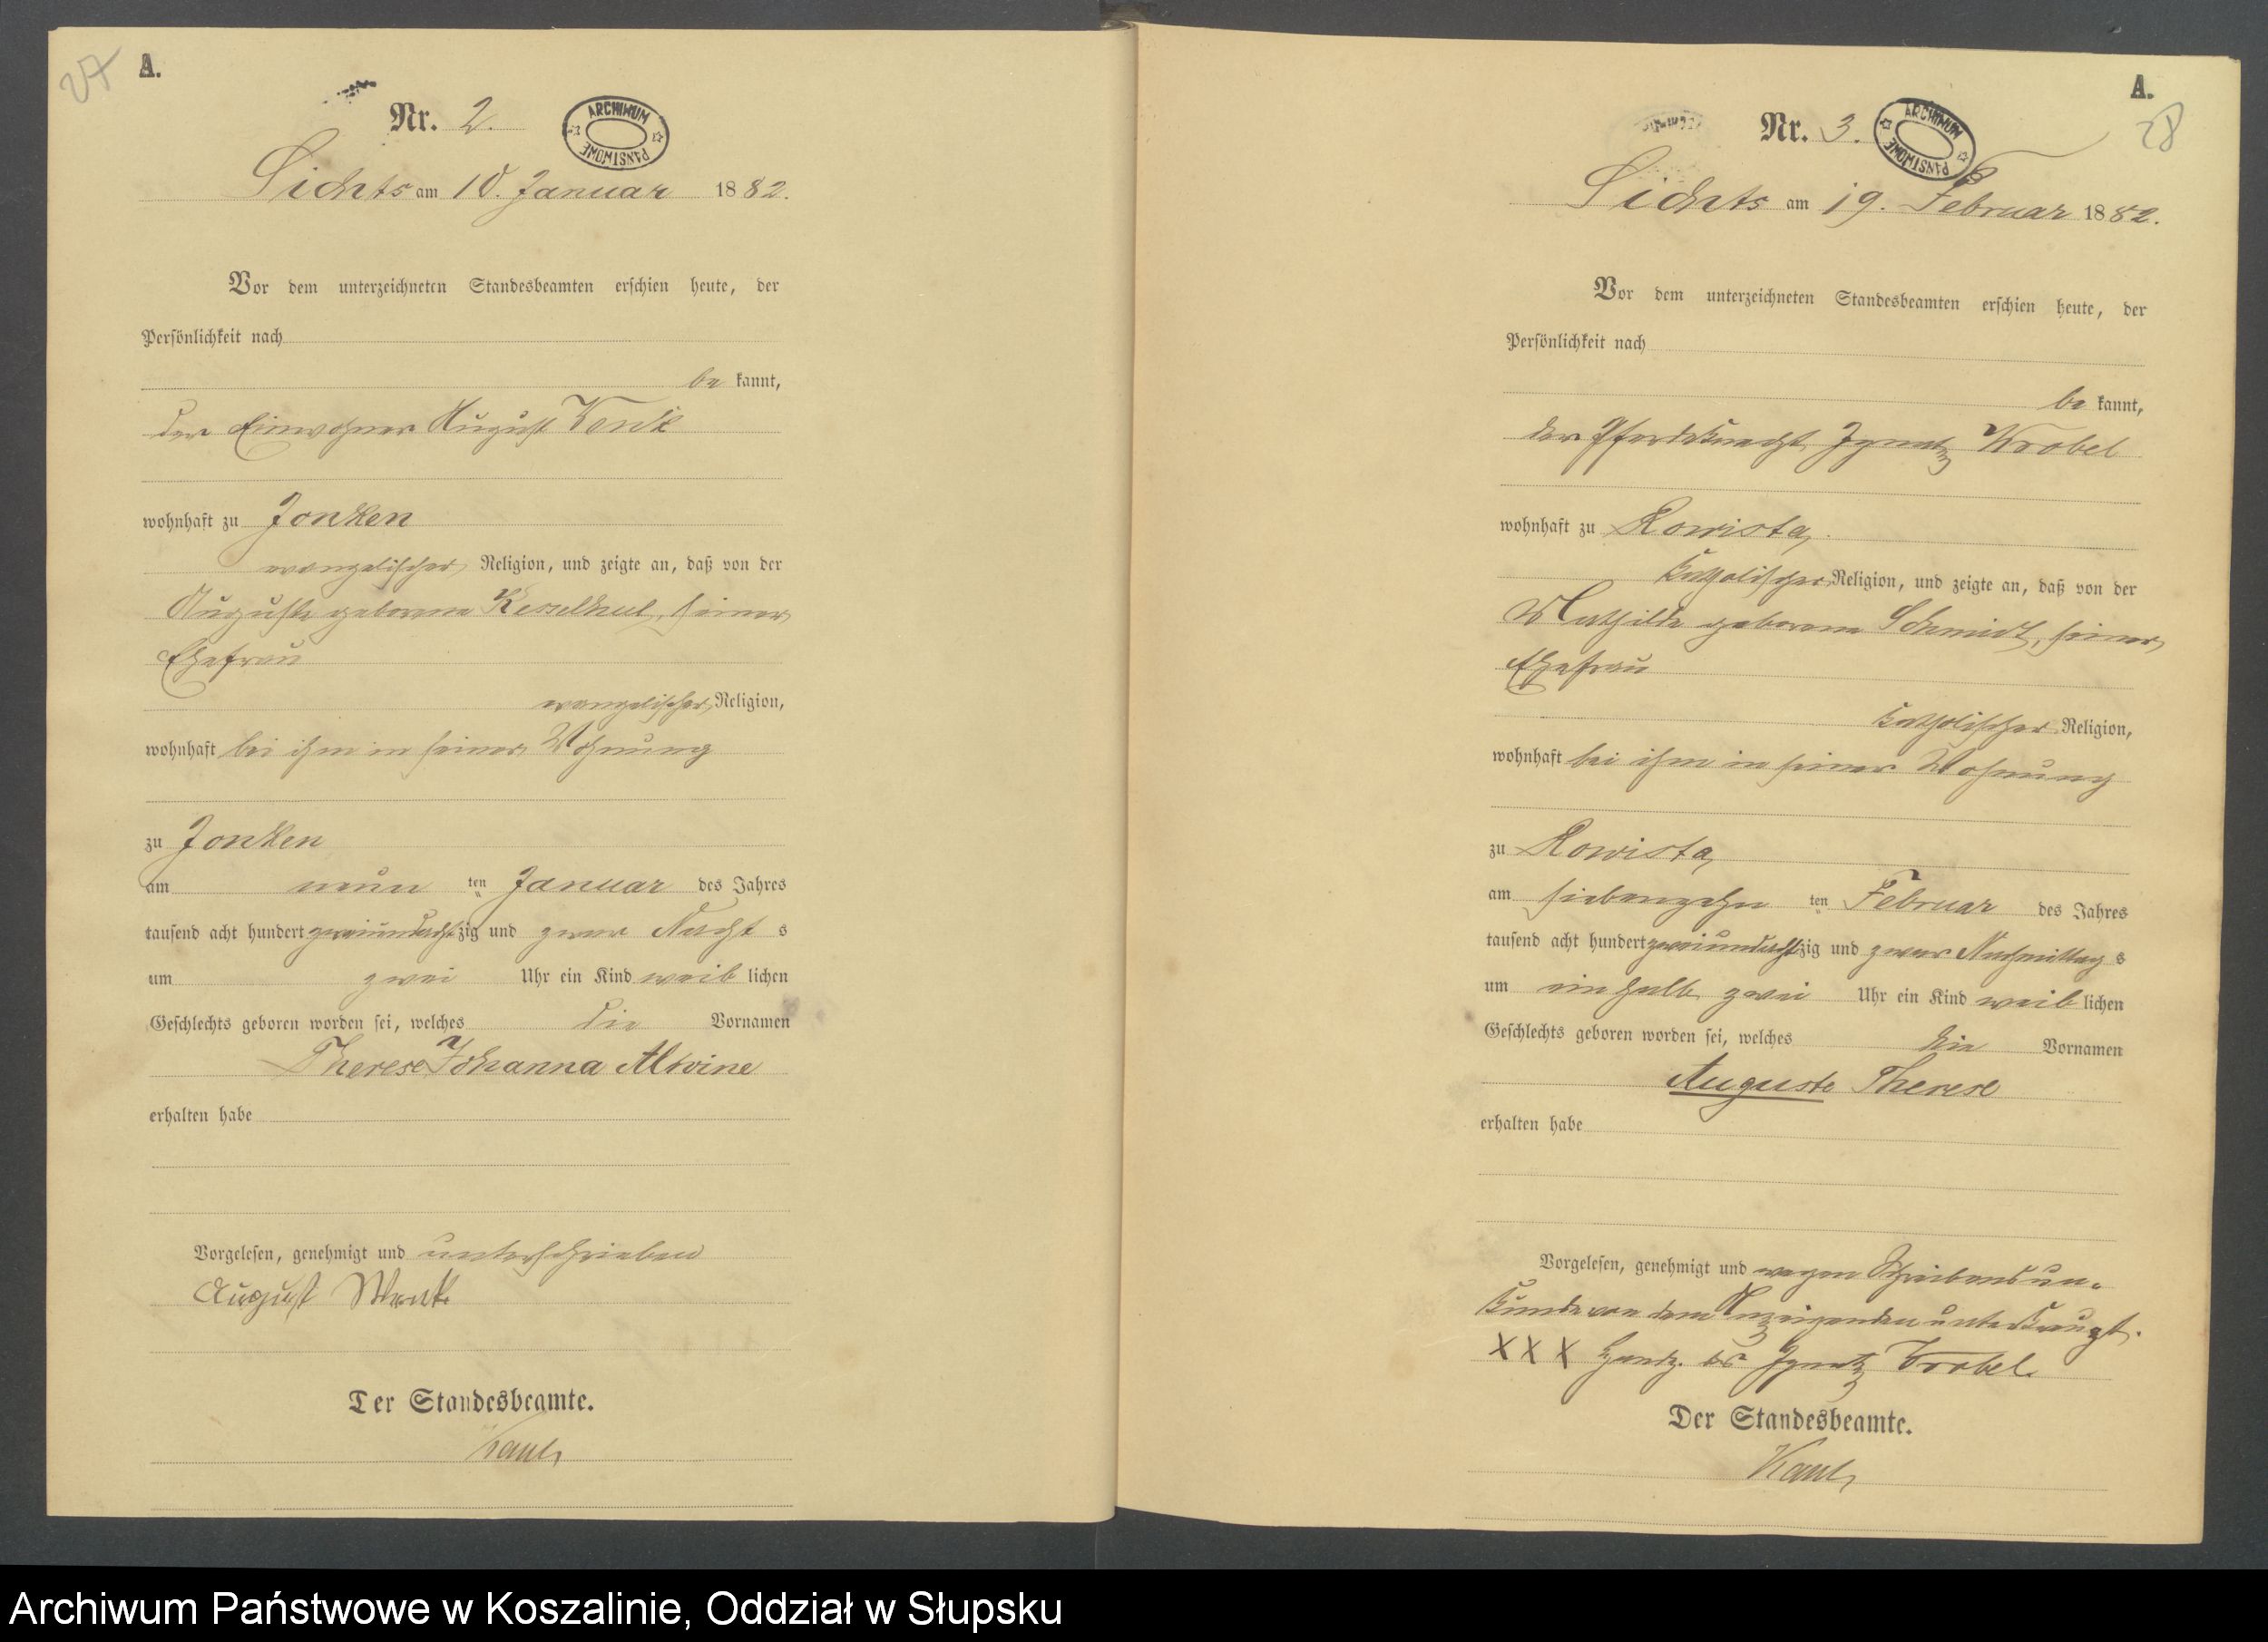 27
A.
Nr. 2.
ARCHIWUM PAŃSTWOWE
Sichts am 10. Januar 1882.
Vor dem unterzeichneten Standesbeamten erschien heute, der
Persönlichkeit nach
be kannt,
der Einwohner August Wenk
wohnhaft zu Jonken
evangelischer Religion, und zeigte an, daß von der
Auguste geborene Kesselhut, seiner
Ehefrau
evangelischer Religion,
wohnhaft bei ihm in seiner Wohnung
zu Jonken
am neun ten Januar des Jahres
tausend acht hundert zweiundachtzig und zwar Nacht s
um zwei Uhr ein Kind weib lichen
Geschlechts geboren worden sei, welches die Vornamen
Therese Johanna Alwine
erhalten habe
Vorgelesen, genehmigt und unterschrieben
August Wenk
Der Standesbeamte.
A.
28
Nr. 3.
ARCHIWUM PAŃSTWOWE
Sichts am 19. Februar 1882.
Vor dem unterzeichneten Standesbeamten erschien heute, der
Persönlichkeit nach
be kannt,
der Pferdeknecht Ignatz Wrobel
wohnhaft zu Rowista,
katholischer Religion, und zeigte an, daß von der
Mathilde geborene Schmidt, seiner
Ehefrau
katholischer Religion,
wohnhaft bei ihm in seiner Wohnung
zu Rowista,
am siebenzehn ten Februar des Jahres
tausend acht hundert zweiundachtzig und zwar Nachmittag s
um einhalb zwei Uhr ein Kind weib lichen
Geschlechts geboren worden sei, welches die Vornamen
Auguste Therese
erhalten habe
Vorgelesen, genehmigt und wegen Schreibensun-
kunde von dem Anzeigenden unterkreuzt.
XXX Handz. des Ignatz Wrobel.
Der Standesbeamte.
Archiwum Państwowe w Koszalinie, Oddział w Słupsku